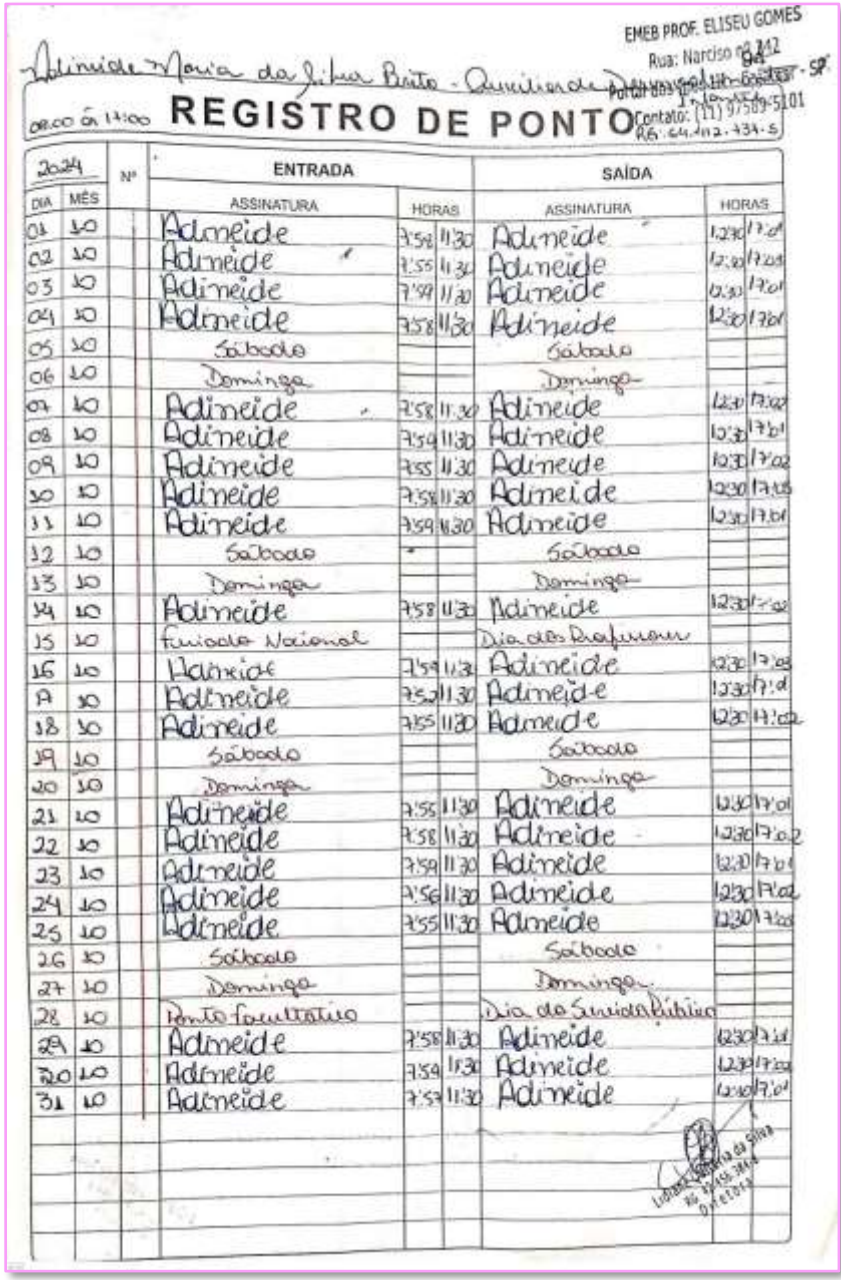 EMEB PROF. ELISEU GOMES
Rua: Narciso nº 212
Adineide Maria da Silva Brito - Auxiliar de
08:00 às 17:00 REGISTRO DE PONTO Contato: (11) 97589-5101
2024 Nº ENTRADA SAÍDA
DIA MÊS ASSINATURA HORAS ASSINATURA HORAS
01 10 Adineide 7:58 11:30 Adineide 12:30 17:01
02 10 Adineide 7:55 11:30 Adineide 12:30 17:03
03 10 Adineide 7:59 11:30 Adineide 12:30 17:01
04 10 Adineide 7:58 11:30 Adineide 12:30 17:01
05 10 Sábado Sábado
06 10 Domingo Domingo
07 10 Adineide 7:58 11:30 Adineide 12:30 17:02
08 10 Adineide 7:59 11:30 Adineide 12:30 17:01
09 10 Adineide 7:55 11:30 Adineide 12:30 17:02
10 10 Adineide 7:58 11:30 Adineide 12:30 17:03
11 10 Adineide 7:59 11:30 Adineide 12:30 17:01
12 10 Sábado Sábado
13 10 Domingo Domingo
14 10 Adineide 7:58 11:30 Adineide 12:30 17:02
15 10 Feriado Nacional Dia dos Professores
16 10 7:59 11:30 Adineide 12:30 17:03
17 10 Adineide 7:52 11:30 Adineide 12:30 17:01
18 10 Adineide 7:55 11:30 Adineide 12:30 17:02
19 10 Sábado Sábado
20 10 Domingo Domingo
21 10 Adineide 7:55 11:30 Adineide 12:30 17:01
22 10 Adineide 7:58 11:30 Adineide 12:30 17:02
23 10 Adineide 7:59 11:30 Adineide 12:30 17:01
24 10 Adineide 7:56 11:30 Adineide 12:30 17:02
25 10 Adineide 7:55 11:30 Adineide 12:30 17:03
26 10 Sábado Sábado
27 10 Domingo Domingo
28 10 Ponto Facultativo Dia do Servidor Público
29 10 Adineide 7:58 11:30 Adineide 12:30 17:01
30 10 Adineide 7:59 11:30 Adineide 12:30 17:02
31 10 Adineide 7:57 11:30 Adineide 12:30 17:01
da Silva
Diretora